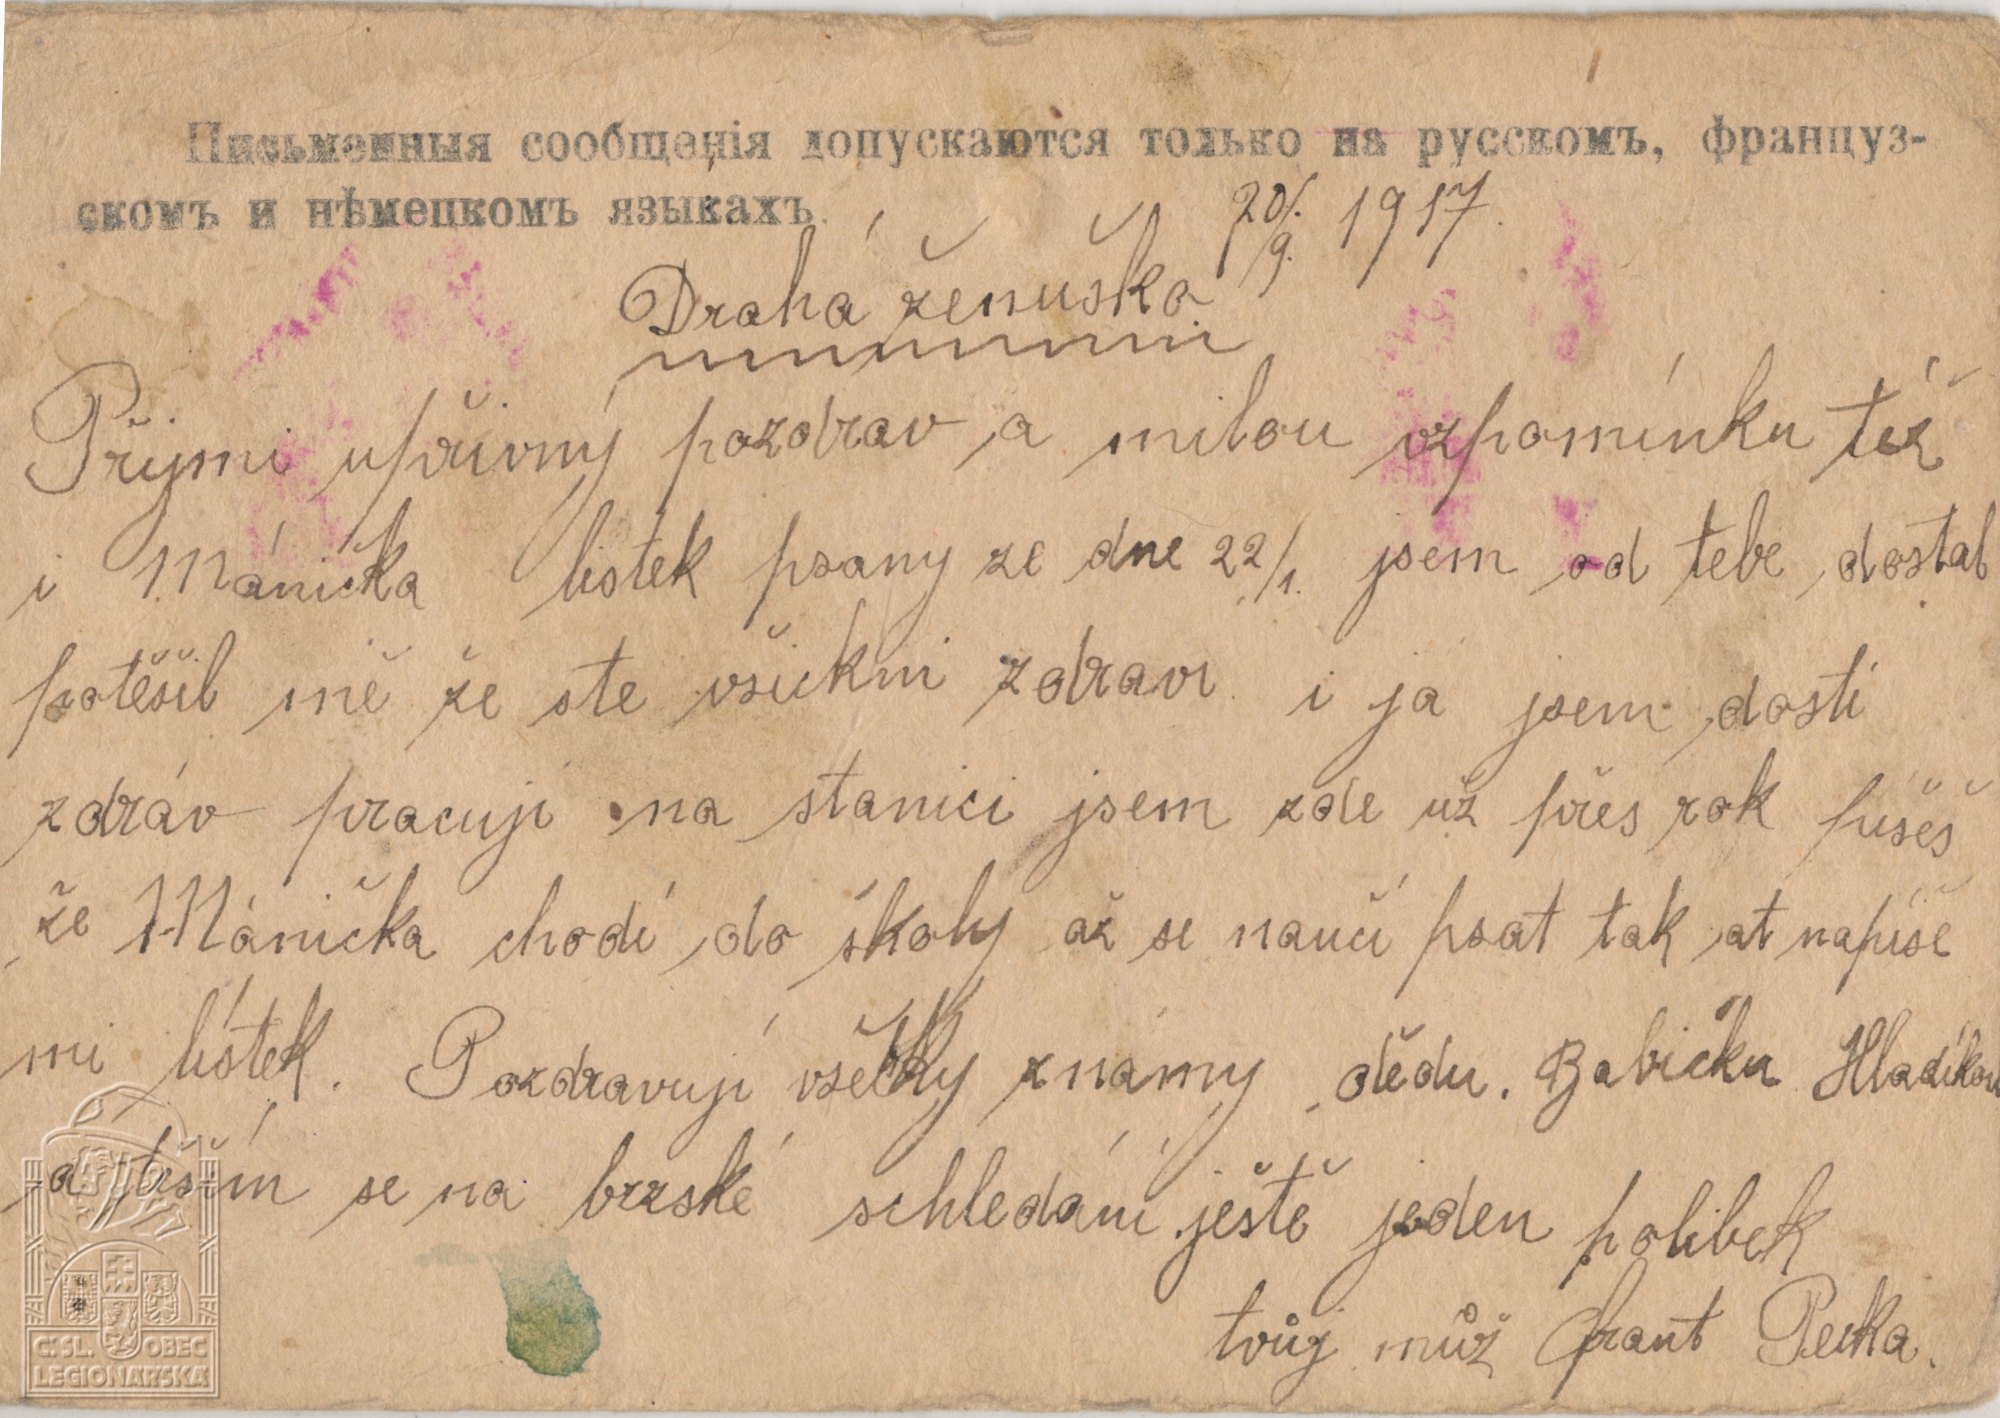 Письменныя сообщенія допускаются только на русскомъ, француз-
скомъ и нѣмецкомъ языкахъ.
20/9. 1917.
Drahá ženuško
Přijmi upřívný pozdrav a milou vzpomínku též
i Mánička lístek psany ze dne 22/1. jsem od tebe dostal
potěšil mě že ste všickni zdravi i já jsem dosti
zdráv pracuji na stanici jsem zde už přes rok píšeš
že Mánička chodí do školy až se naučí psat tak at napíše
mi lístek. Pozdravuji všecky známy dědu. Babičku Hladíkov
a těším se na brzské schledání ještě jeden polibek
tvůj můž Frant Pecka.
Č.SL. OBEC
LEGIONÁŘSKÁ